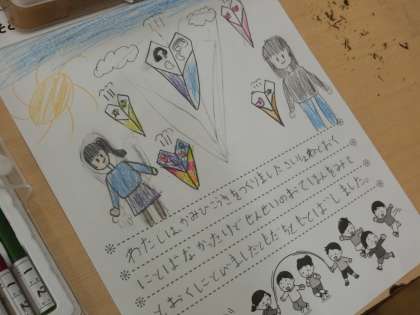 わたしは、かみひこうきをつくりましたさいしょわとおく
にとばなかったけどせんせいのおてほんをみたら
とおくにとびましたともだちともとばしました。